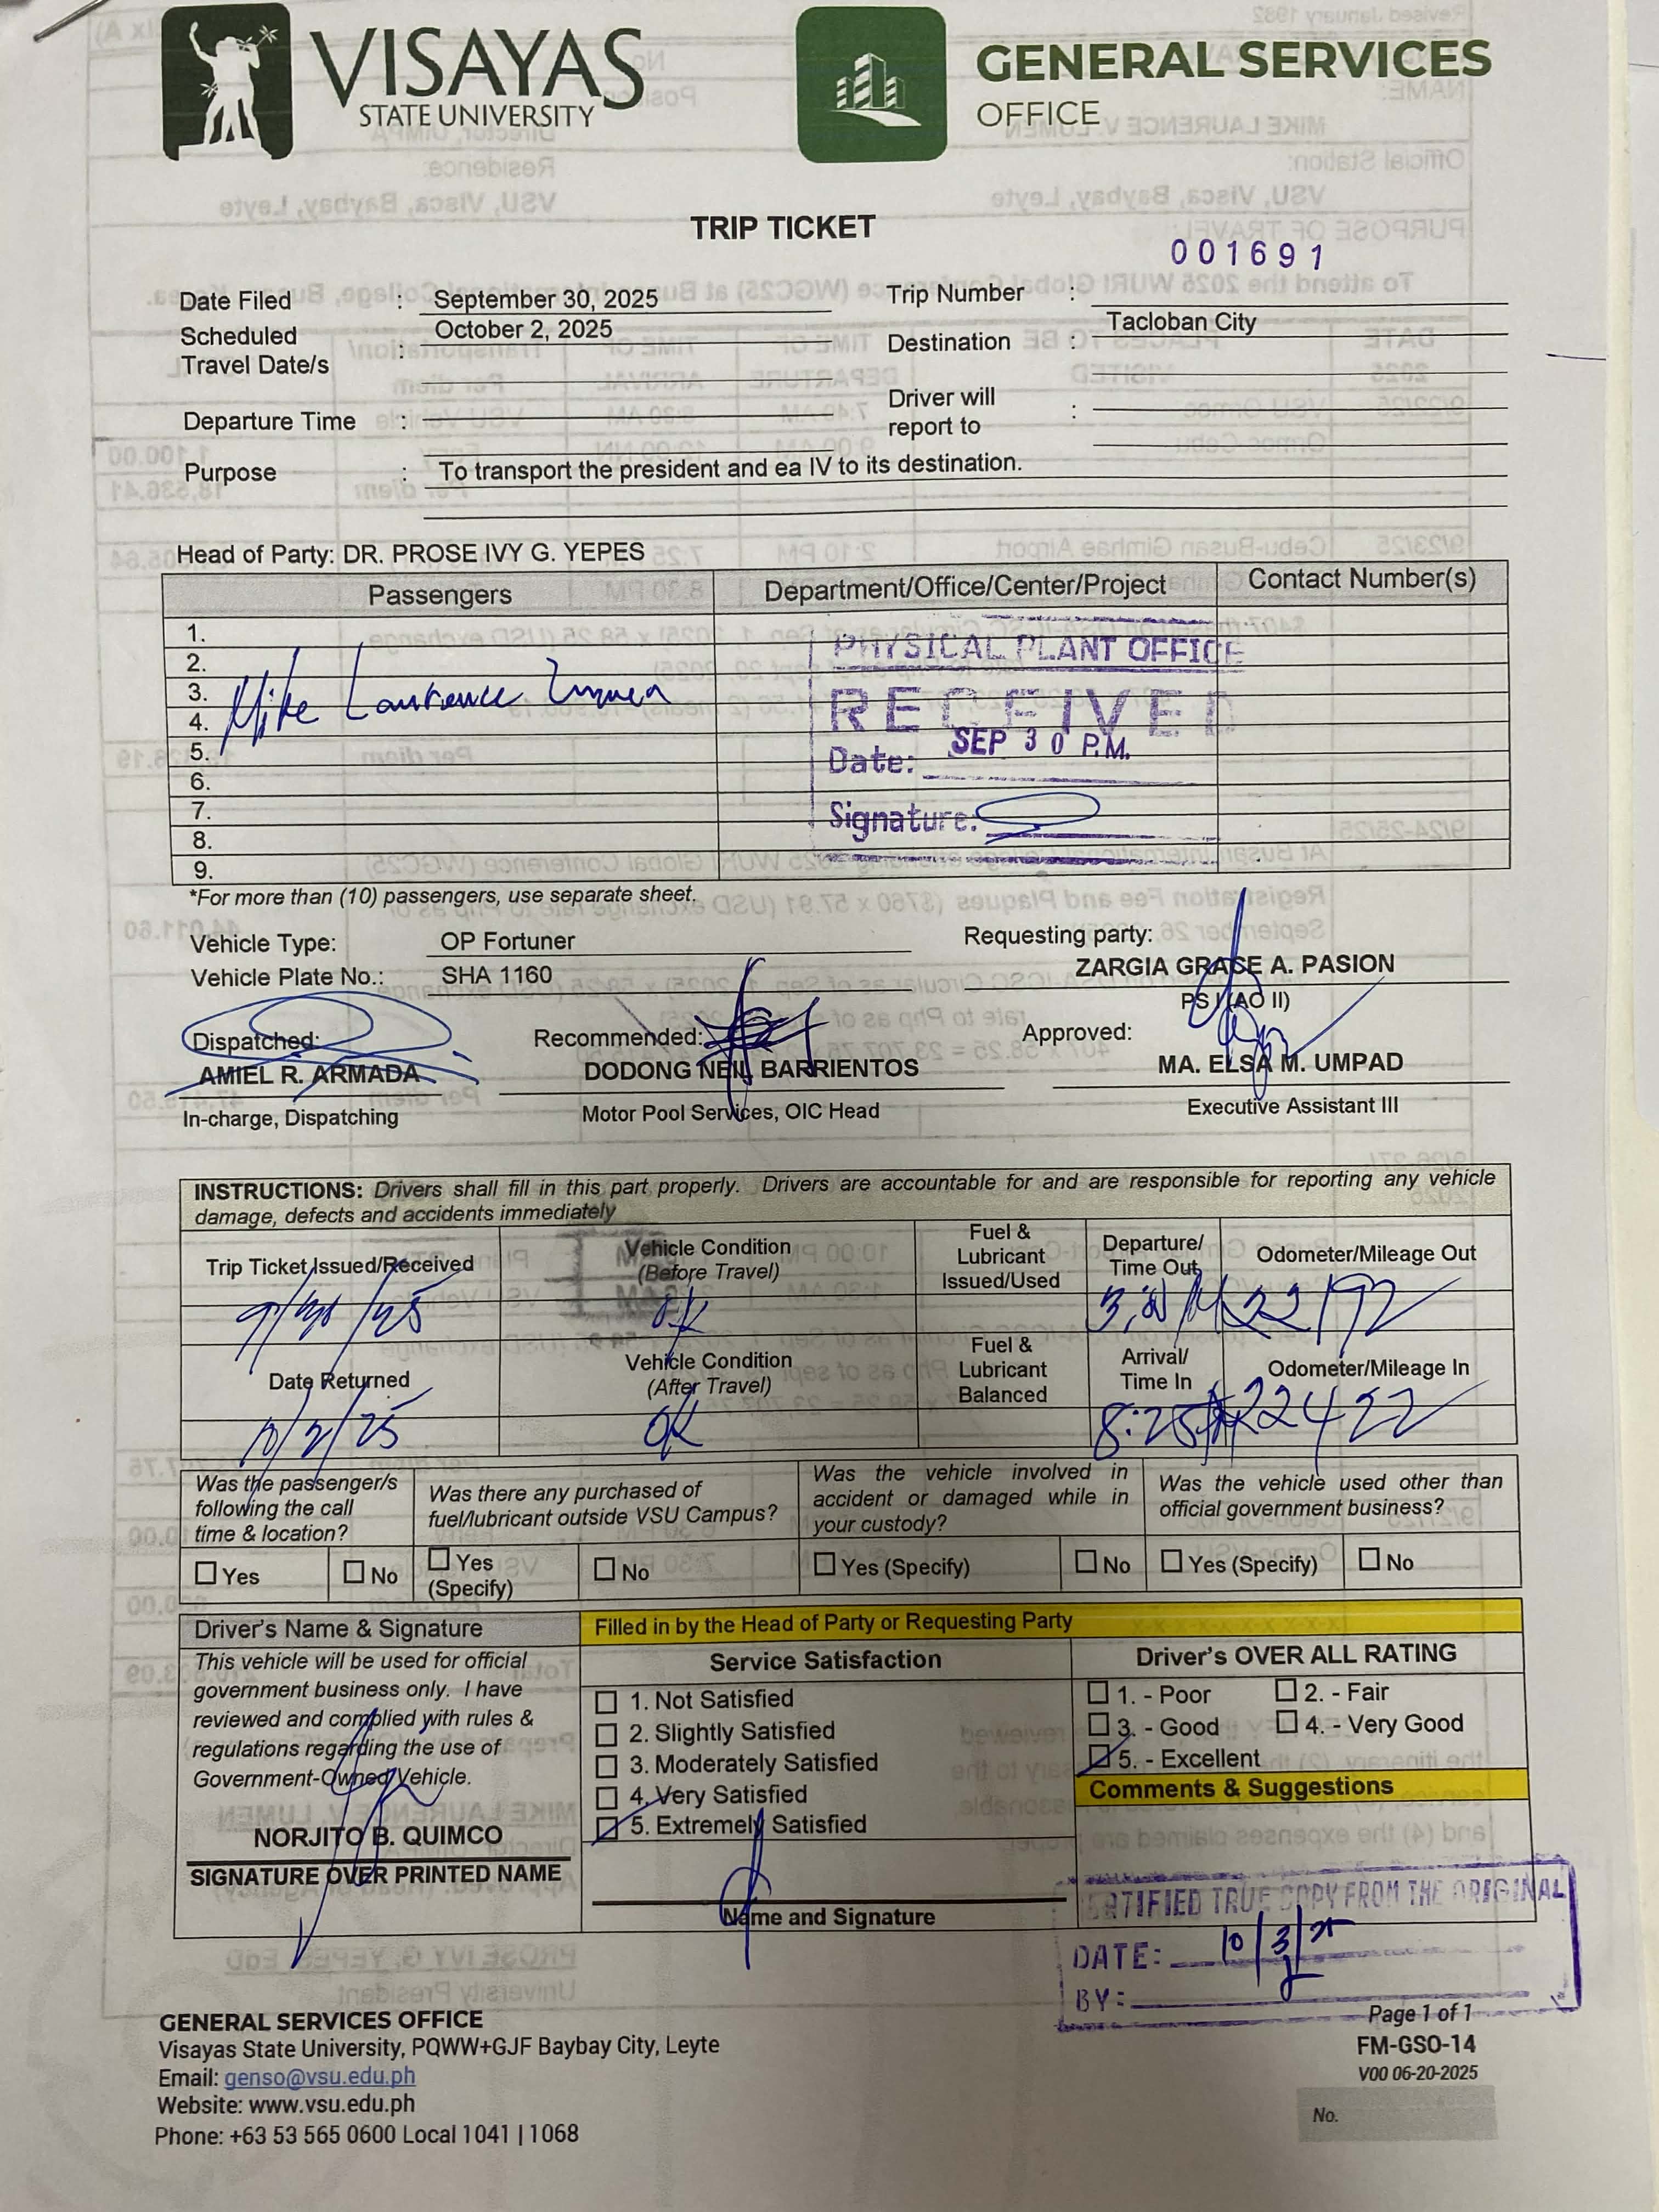 VISAYAS
STATE UNIVERSITY
GENERAL SERVICES
OFFICE
TRIP TICKET
001691
Date Filed : September 30, 2025
Trip Number :
Scheduled Travel Date/s : October 2, 2025
Destination : Tacloban City
Departure Time :
Driver will report to :
Purpose : To transport the president and ea IV to its destination.
Head of Party: DR. PROSE IVY G. YEPES
Passengers Department/Office/Center/Project Contact Number(s)
1.
2.
3. Mike Laurence
4.
5.
6.
7.
8.
9.
PHYSICAL PLANT OFFICE
RECEIVED
Date: SEP 30 P.M.
Signature:
*For more than (10) passengers, use separate sheet.
Vehicle Type: OP Fortuner
Vehicle Plate No.: SHA 1160
Requesting party:
ZARGIA GRASE A. PASION
PS I (AO II)
Dispatched:
AMIEL R. ARMADA
In-charge, Dispatching
Recommended:
DODONG NEIL BARRIENTOS
Motor Pool Services, OIC Head
Approved:
MA. ELSA M. UMPAD
Executive Assistant III
INSTRUCTIONS: Drivers shall fill in this part properly. Drivers are accountable for and are responsible for reporting any vehicle
damage, defects and accidents immediately
Trip Ticket Issued/Received
Vehicle Condition
(Before Travel)
Fuel &
Lubricant
Issued/Used
Departure/
Time Out
Odometer/Mileage Out
9/30/25 OK 22192
Date Returned
Vehicle Condition
(After Travel)
Fuel &
Lubricant
Balanced
Arrival/
Time In
Odometer/Mileage In
10/2/25 OK 8:25 22422
Was the passenger/s
following the call
time & location?
Was there any purchased of
fuel/lubricant outside VSU Campus?
Was the vehicle involved in
accident or damaged while in
your custody?
Was the vehicle used other than
official government business?
Yes No
Yes (Specify) No
Yes (Specify) No
Yes (Specify) No
Driver's Name & Signature
This vehicle will be used for official
government business only. I have
reviewed and complied with rules &
regulations regarding the use of
Government-Owned Vehicle.
NORJITO B. QUIMCO
SIGNATURE OVER PRINTED NAME
Filled in by the Head of Party or Requesting Party
Service Satisfaction
1. Not Satisfied
2. Slightly Satisfied
3. Moderately Satisfied
4. Very Satisfied
5. Extremely Satisfied
Name and Signature
Driver's OVER ALL RATING
1. - Poor 2. - Fair
3. - Good 4. - Very Good
5. - Excellent
Comments & Suggestions
CERTIFIED TRUE COPY FROM THE ORIGINAL
DATE: 10/3/25
BY:
GENERAL SERVICES OFFICE
Visayas State University, PQWW+GJF Baybay City, Leyte
Email: genso@vsu.edu.ph
Website: www.vsu.edu.ph
Phone: +63 53 565 0600 Local 1041 | 1068
Page 1 of 1
FM-GSO-14
V00 06-20-2025
No.